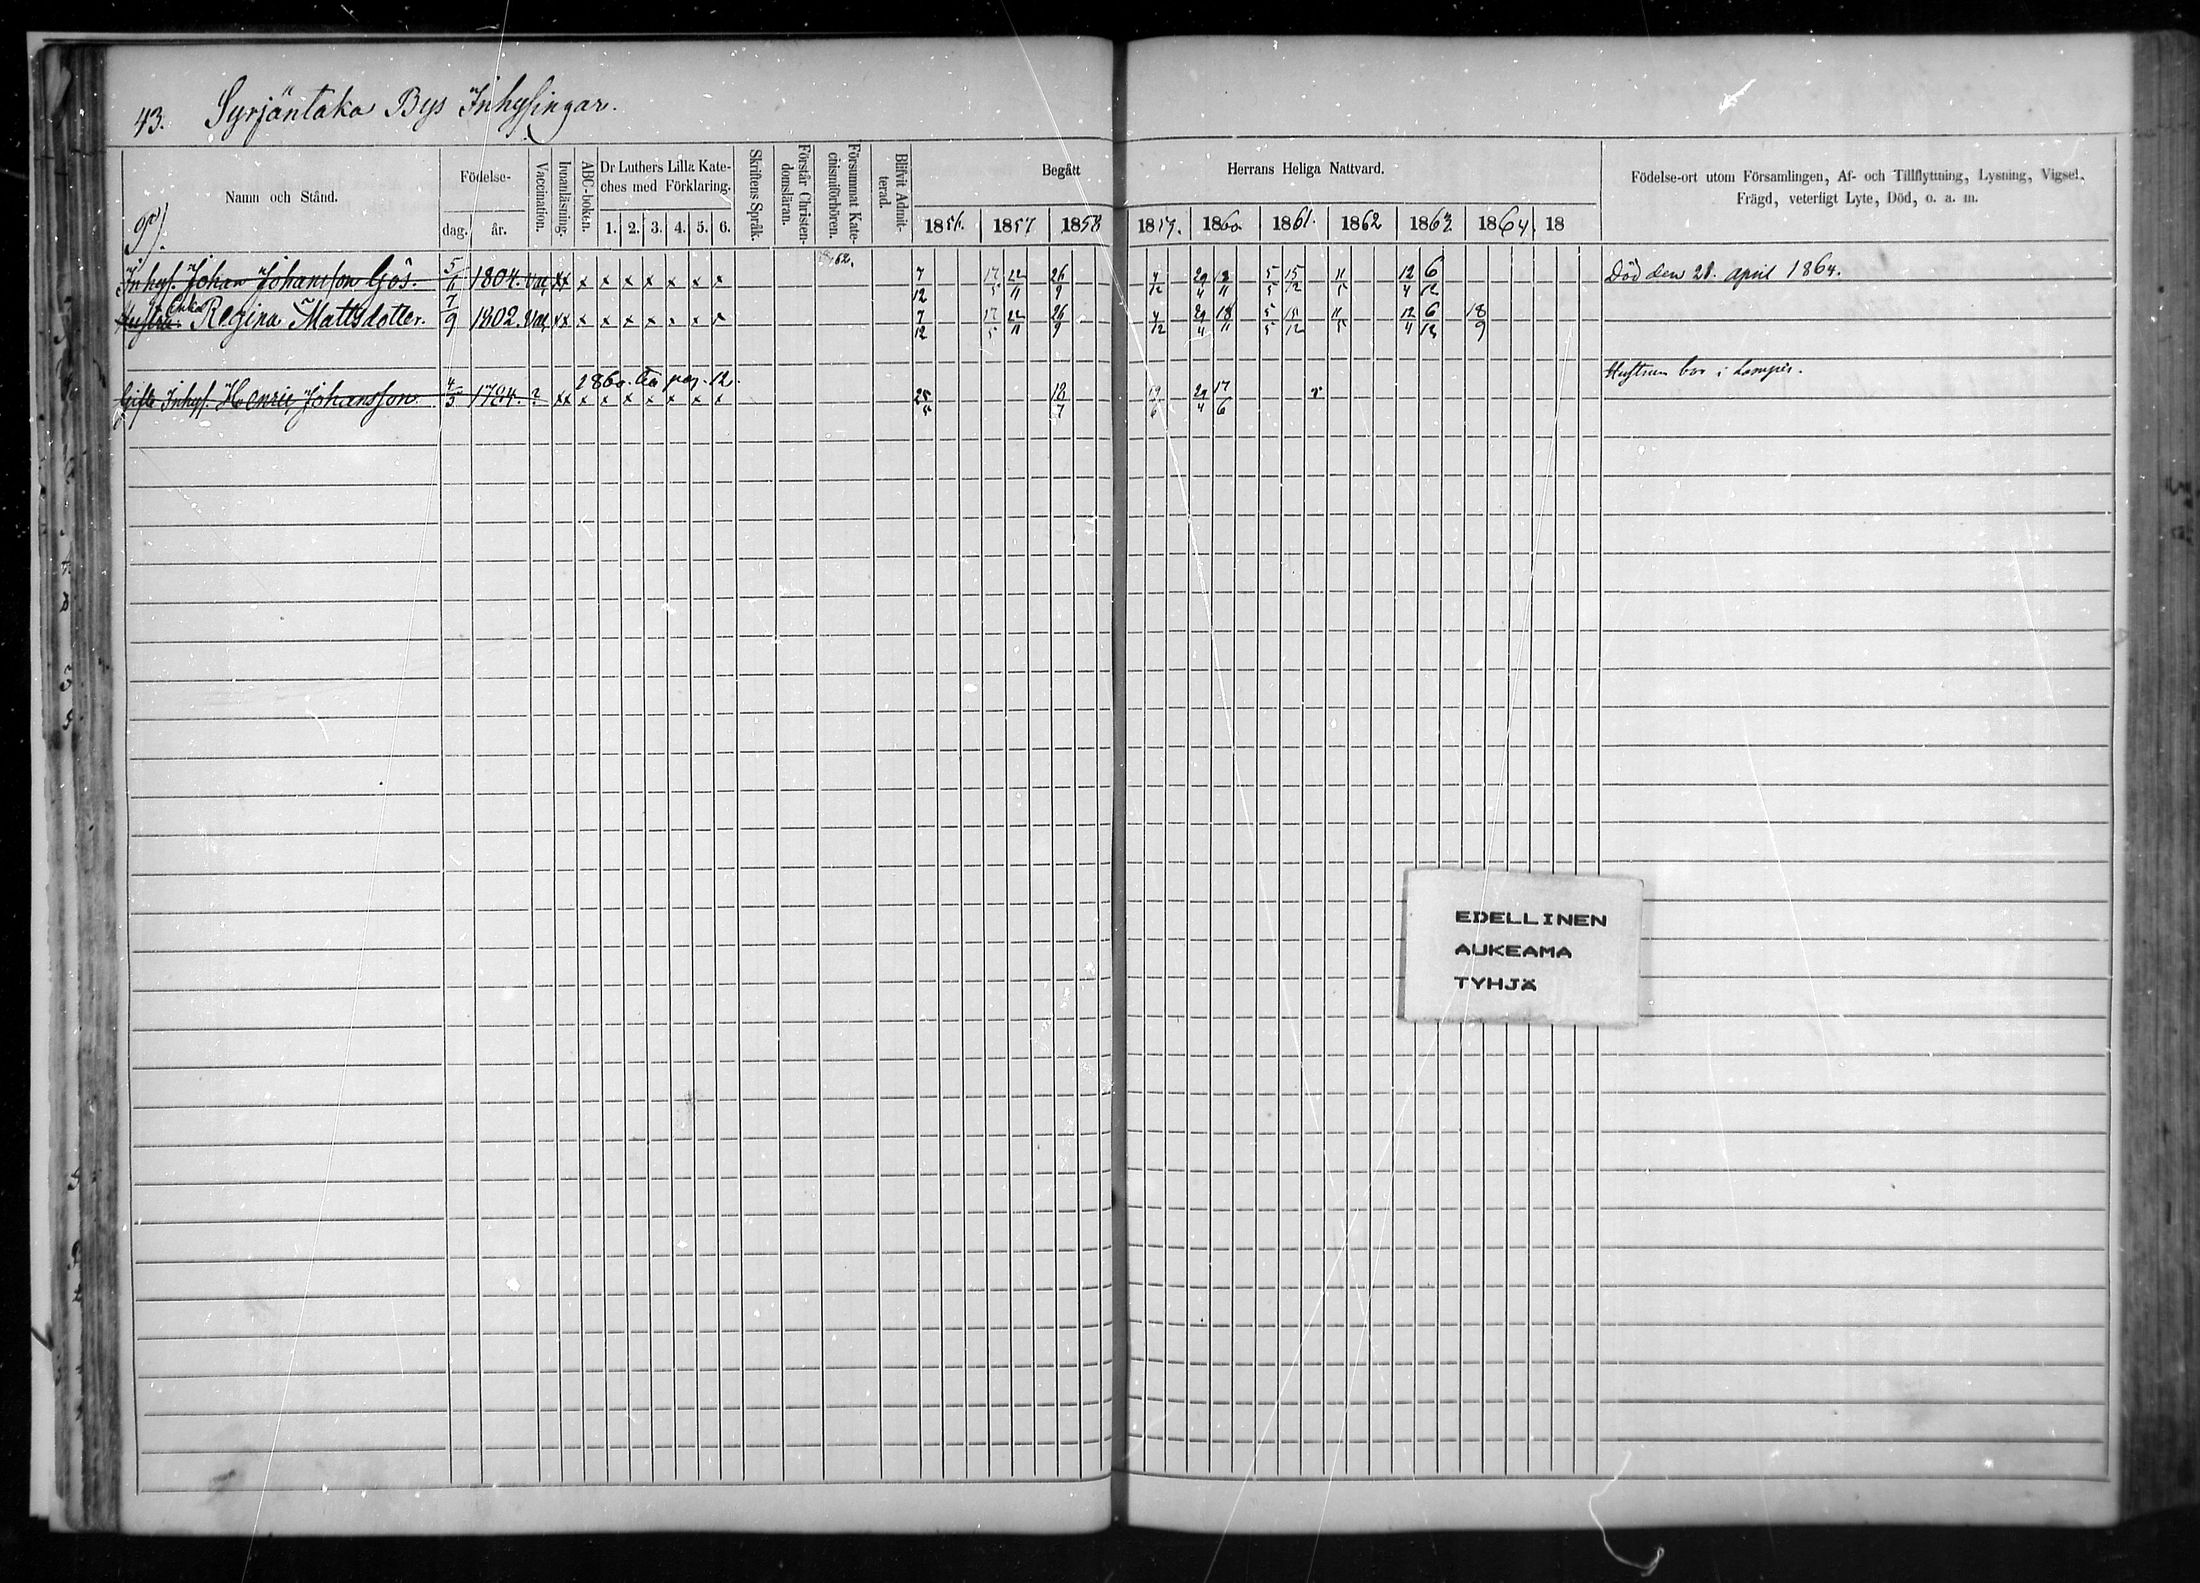 43. Syrjäntaka Bys Inhysingar.
Namn och Stånd.
Födelse-
dag. år.
Vaccination.
Innanläsning.
ABC-boken.
Dr Luthers Lilla Kate-
ches med Förklaring.
1. 2. 3. 4. 5. 6.
Skriftens Språk.
Förstår Christen-
domsläran.
Försummat Kate-
chismiförhören.
Blifvit Admit-
terad.
Begått Herrans Heliga Nattvard.
1856. 1857 1858 1859. 1860 1861. 1862 1863 1864. 18
Födelse-ort utom Församlingen, Af- och Tillflyttning, Lysning, Vigsel,
Frägd, veterligt Lyte, Död, o. a. m.
62.
Inhys. Johan Johansson Gös. 5/6 1804. vac xx x x x x x x x 7/12 17/5 22/11 26/9 4/12 29/4 18/11 5/5 15/12 11/5 12/4 6/12 Död den 21. april 1864.
Enka
Hustru Regina Mattsdotter. 7/9 1802. vac xx x x x x x x x 7/12 17/5 22/11 26/9 4/12 29/4 18/11 5/5 15/12 11/5 12/4 6/12 18/9
1860. pag. 12. Hustrun bor i Lampis.
Gifte Inhys. Henric Johansson 4/5 1784. ? xx x x x x x x x 25/5 18/7 19/6 29/4 17/6
EDELLINEN
AUKEAMA
TYHJÄ